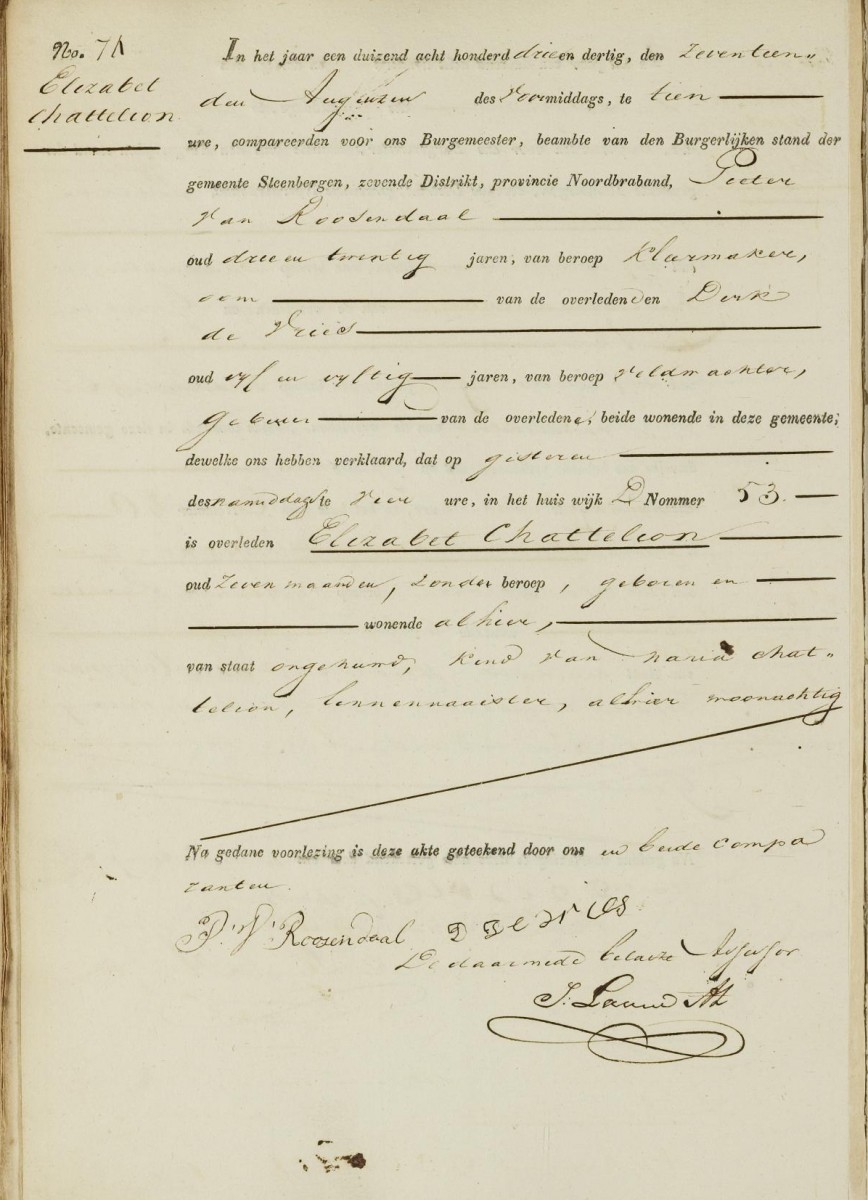 No. 71
Elizabet
Chattelion
In het jaar een duizend acht honderd drie en dertig, den zeventien-
den Augustus des voormiddags, te tien
ure, compareerden voor ons Burgemeester, beambte van den Burgerlijken stand der
gemeente Steenbergen, zevende Distrikt, provincie Noordbraband, Peeter
van Roosendaal
oud drie en twintig jaren, van beroep kleermaker,
oom van de overledenden Dirk
de Vries
oud vyf en vyftig jaren, van beroep veldwachter,
gebuur van de overledene, beide wonende in deze gemeente;
dewelke ons hebben verklaard, dat op gisteren
des namiddags te vier ure, in het huis wijk D Nommer 53.
is overleden Elizabet Chattelion
oud zeven maanden, zonder beroep, geboren en
wonende alhier,
van staat ongehuwd, kind van Maria Chat-
telion, linnennaaister, alhier woonachtig
Na gedane voorlezing is deze akte geteekend door ons en beide compa
ranten.
P. V. Roosendaal D De Vries
De daarmede belaste Assessor